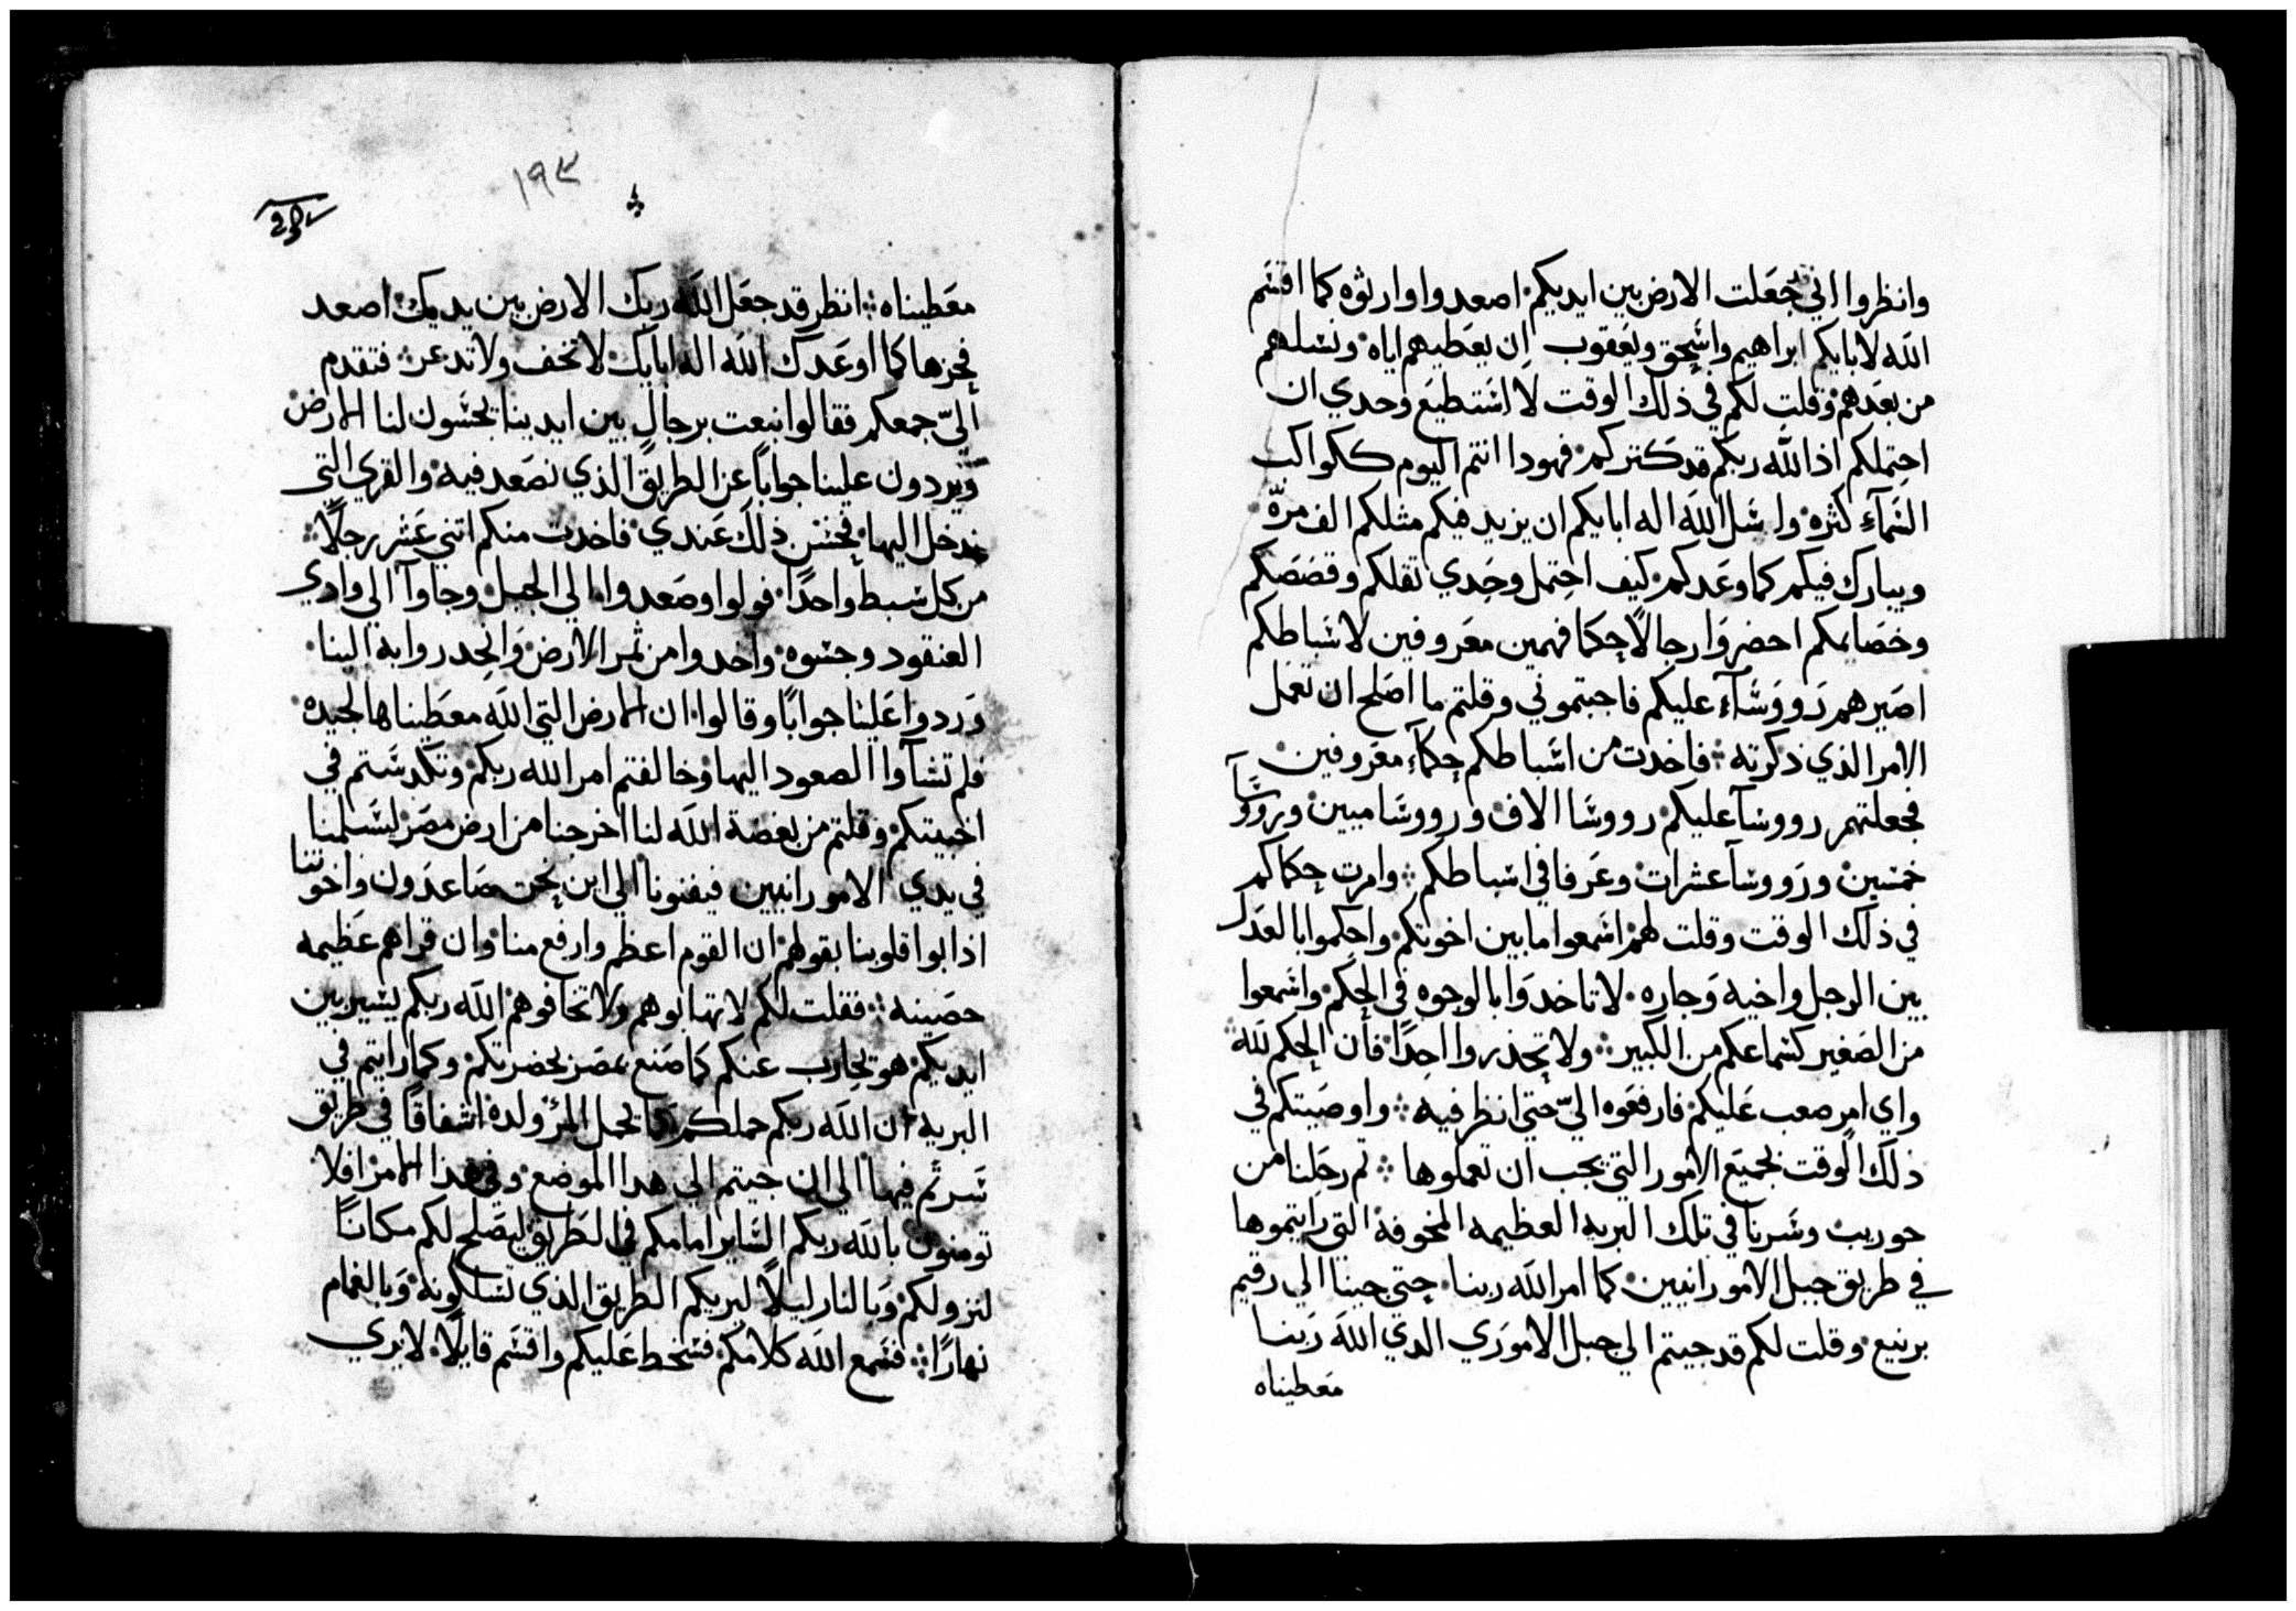 وانظروا اني جعلت الارض بين ايديكم اصعدوا وارثوه كما اقسَم
الله لابايكم ابراهيم واسحق ويعقوب ان يعطيهم اياه ونسلهم
من بعدهم وقلت لكم في ذلك الوقت لا استطيع وحدي ان
احتملكم اذ الله ربكم قد كتركم فهودا انتم اليوم ككواكب
السمآء كثره واسَل الله اله ابايكم ان يزيد فيكم مثلكم الف مرّه
ويبارك فيكم كما وعدكم كيف احتمل وحدي تقلكم وقصَصَكم
وخصَايمكم احضروا رجالًا حكما فهمين معروفين لاسَباطكم
اصَيرهم رَووسَآء عليكم فاجبتموني وقلتم ما اصَلح ان نعمل
الامر الذي ذكرته فاخدت من اسَباطكم حكمآء معَروفين
فجعلتهم رووسآ عليكم رووسَا الاف ورووسَا ميين ورووسَآ
خمسين ورَووسآ عشرات وعَرفا في اسباطكم وامرت حكامكم
في ذلك الوقت وقلت لهم اسَمعوا ما بين اخوتكم واحكموا بالعَدل
بين الرجل واخيه وَجاره لا تاخدوَا بالوجوه في الحكم واسَمعوا
من الصَغير كسَماعكم من الكبير ولا تحذروا احدًا فان الحكم لله
واي امر صعب عَليكم فارفعَوه اليّ حتي انظر فيه واوصَيتكم في
ذلك الوقت بجميَع الامور التي يجب ان تعملوها تم رحَلنا من
حوريب وسَرنا في تلك البريه العظيمه المخوفة التي رايتموها
في طريق جبل الامورانيين كما امر الله ربنا حتي جينا الي رقيم
برنيع وقلت لكم قد جيتم الي جبل الاموَري الدي الله رَبنا
معطيناه
١٩٣
معَطيناه انظر قد جعَل الله ربك الارض بين يديك اصعد
فحزها كما اوعَدك الله اله ابايك لا تخف ولا تدعر فتقدم
اليّ جمعكم فقالوا نبعت برجالٍ بين ايدينا يجسَون لنا الارض
ويردون علينا جوابًا عن الطريق الذي نصَعد فيه والقري التي
ندخل اليها فحسَن ذلك عَندي فاخدت منكم اتني عَشر رجلًا
من كل سبط واحدًا فولوا وصَعدوا الي الجبل وجاوآ الي وادي
العنقود وجسَوه واخدوا من ثمر الارض وَانحدروا به الينا
وَردوا عَلينا جوابًا وقالوا ان الارض التي الله معطيناها لجيده
فلم تشآوا الصعود اليها وخالفتم امر الله ربكم وتكدسَتم في
اخبيتكم وقلتم من بغضة الله لنا اخرجنا من ارض مصَر ليسَلمنا
في يدي الامورانيين فيفنونا الي اين نحن صَاعدَون واخوتنا
اذابوا قلوبنا بقولهم ان القوم اعظم وارفع منا وان قراهم عظيمه
حصَينه فقلت لكم لا تهابوهم ولا تخافوهم الله ربكم يسَير بين
ايديكم هو يحارب عنكم كما صَنع بمصَر بحضرتكم وكما رايتم في
البريه ان الله ربكم حملكم كما يحمل المرؤ ولده اشفاقًا في طريق
سَرتم فيها الي ان جيتم الي هدا الموضع وفي هذا الامر افلا
تومنون بالله ربكم السَاير امامكم في الطريق ليصَلح لكم مكانًا
لنزولكم وَبالنار ليلًا ليريكم الطريق الذي تسَلكونه وَبالغمام
نهارًا فسَمع الله كلامكم فسَخط عَليكم واقسَم قايلًا لا يري